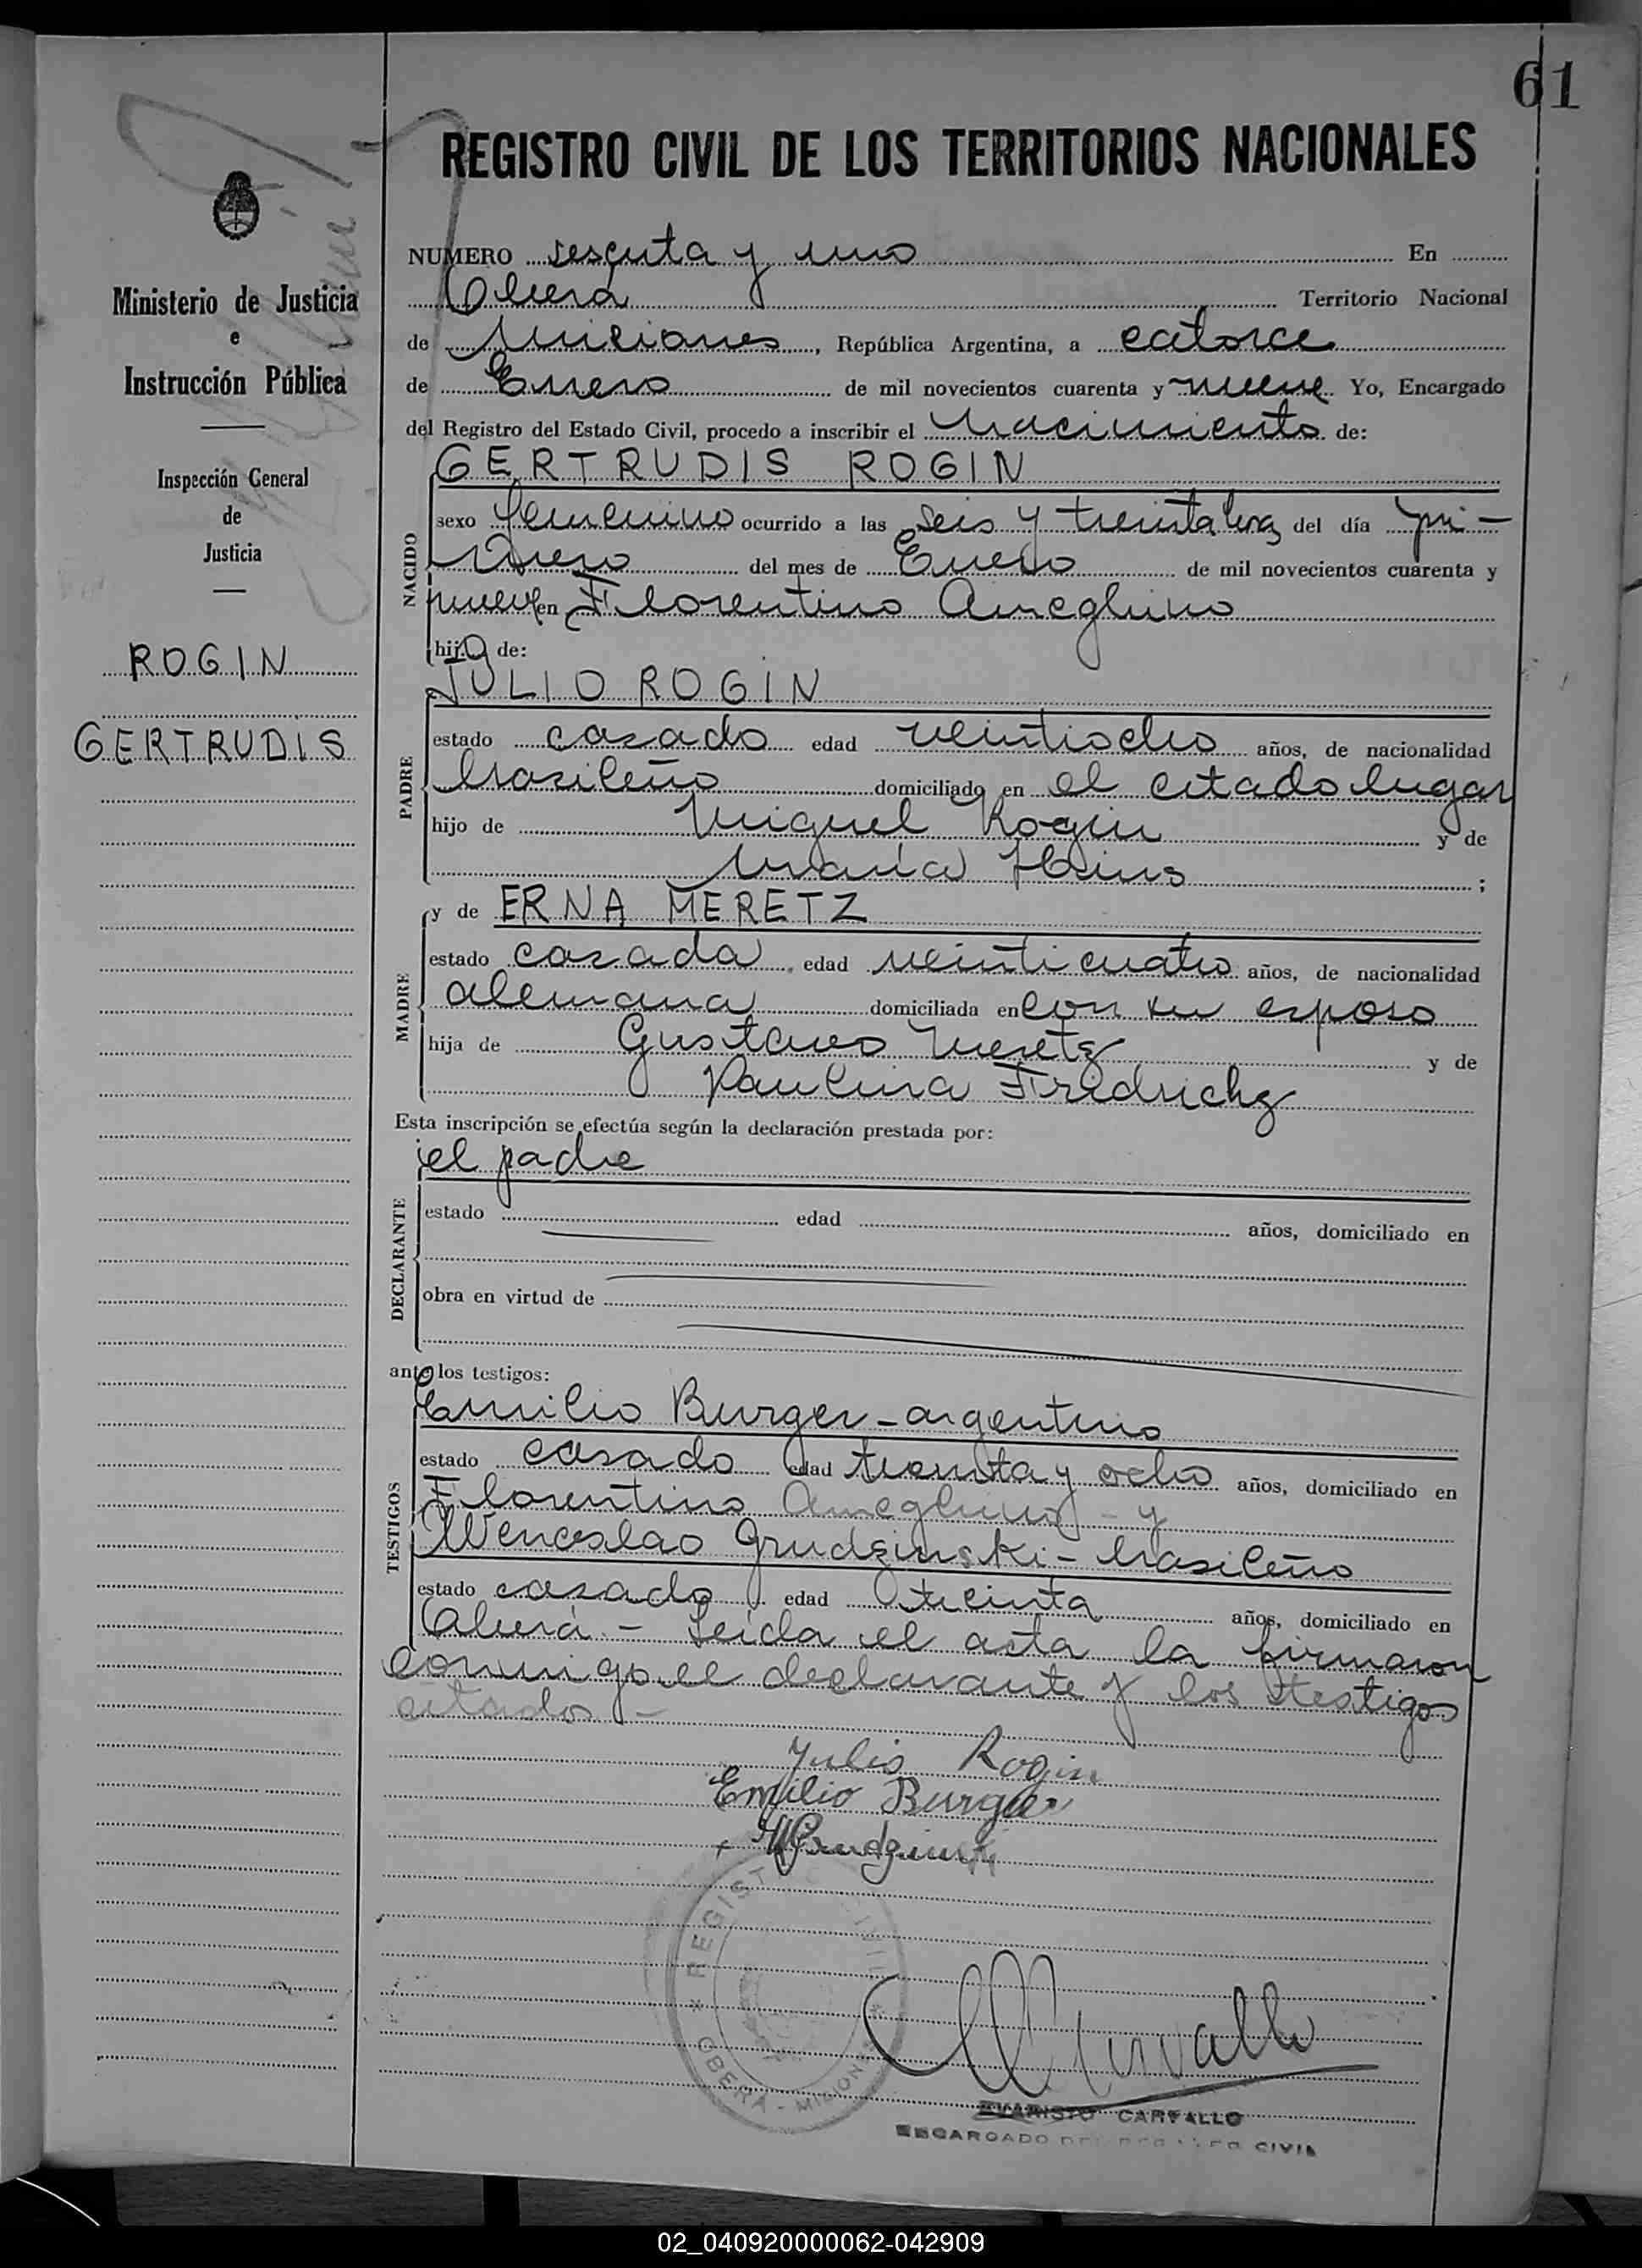 61
REGISTRO CIVIL DE LOS TERRITORIOS NACIONALES
Ministerio de Justicia
e
Instrucción Pública
Inspección General
de
Justicia
ROGIN
GERTRUDIS
NUMERO sesenta y uno En
Oberá Territorio Nacional
de Misiones, República Argentina, a catorce
de Enero de mil novecientos cuarenta y nueve Yo, Encargado
del Registro del Estado Civil, procedo a inscribir el nacimiento de:
GERTRUDIS ROGIN
NACIDO
sexo femenino ocurrido a las seis y treinta hrs del día pri-
mero del mes de Enero de mil novecientos cuarenta y
nueve en Florentino Ameghino
hija de:
JULIO ROGIN
PADRE
estado casado edad veintiocho años, de nacionalidad
brasileño domiciliado en el citado lugar
hijo de Miguel Rogin y de
María ;
y de ERNA MERETZ
MADRE
estado casada edad veinticuatro años, de nacionalidad
alemana domiciliada en con su esposo
hija de Gustavo Meretz y de
Paulina Fridrichz
Esta inscripción se efectúa según la declaración prestada por:
el padre
DECLARANTE
estado edad años, domiciliado en
obra en virtud de
ante los testigos:
Emilio Burger - argentino
TESTIGOS
estado casado edad treinta y ocho años, domiciliado en
Florentino Ameghino - y
Wenceslao Grudzinski - brasileño
estado casado edad treinta años, domiciliado en
Oberá. - Leída el acta la firmaron
conmigo el declarante y los testigos
citados -
Julio Rogin
Emilio Burger
REGISTRO CIVIL
OBERA - MISIONES
EVARISTO CARVALLO
ENCARGADO DEL REGISTRO CIVIL
02_040920000062-042909